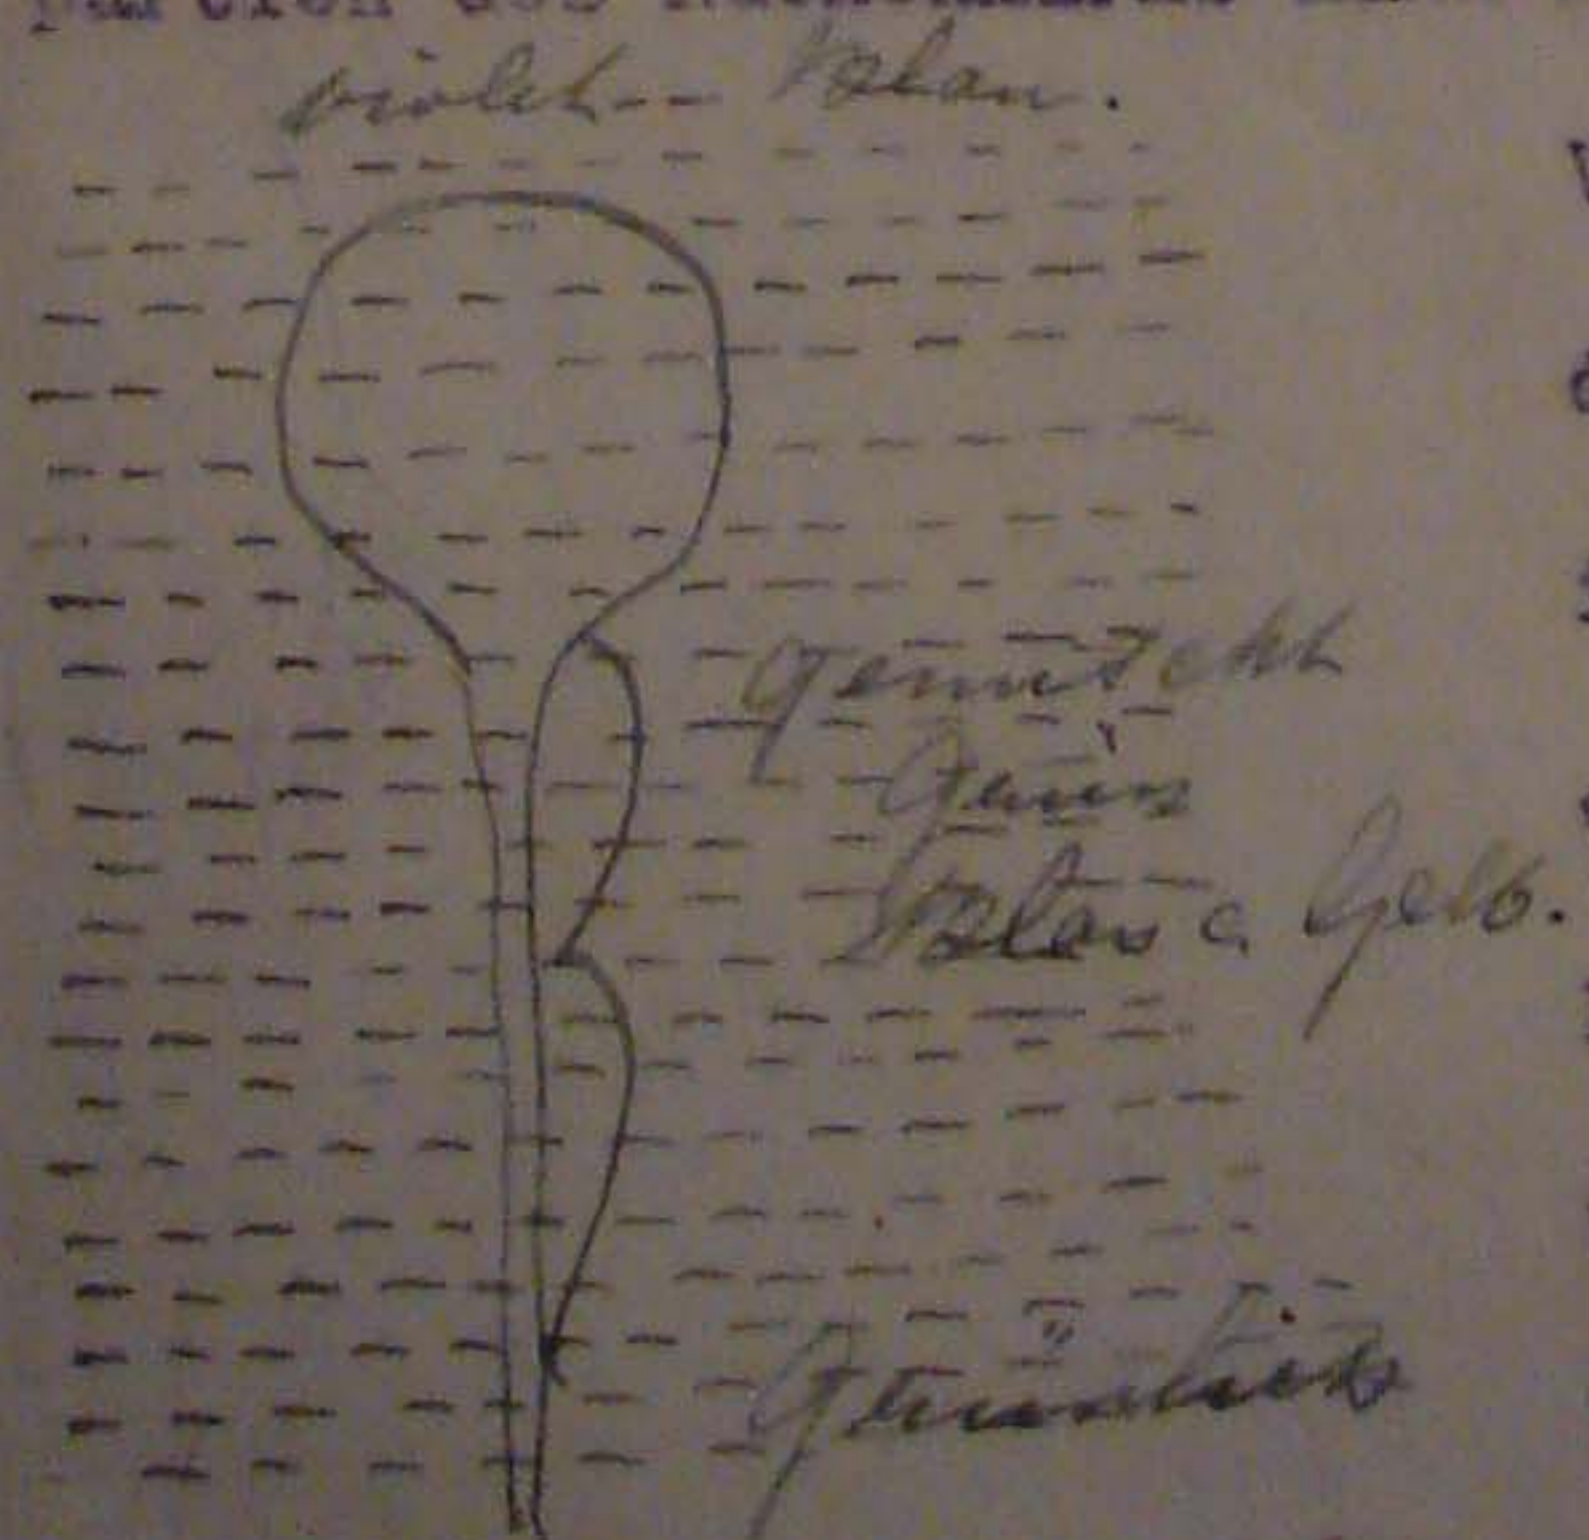 violet -- Blau.
gemischt
Grün
Blau u. Gelb.
Grünlich